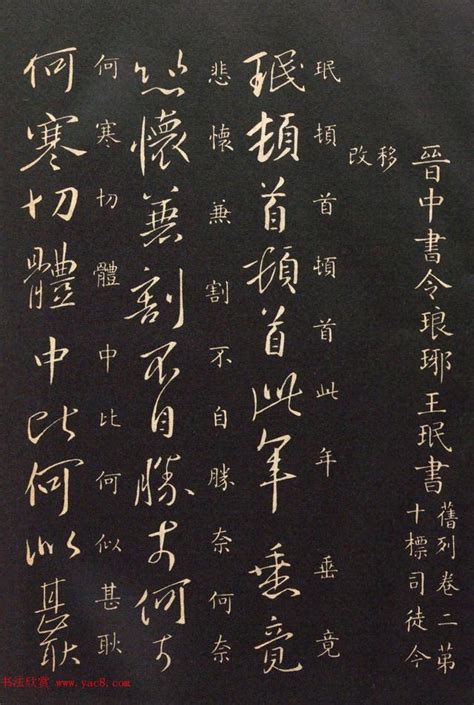 晉中書令琅琊王珉書
舊列卷二第
十標司徒令
移
改
珉頓首頓首此年垂竟
珉頓首頓首此年垂竟
悲懷兼割不自勝奈何奈
悲懷兼割不自勝奈何奈
何寒切體中比何似甚耿
何寒切體中比何似甚耿
书法欣赏 www.yac8.com